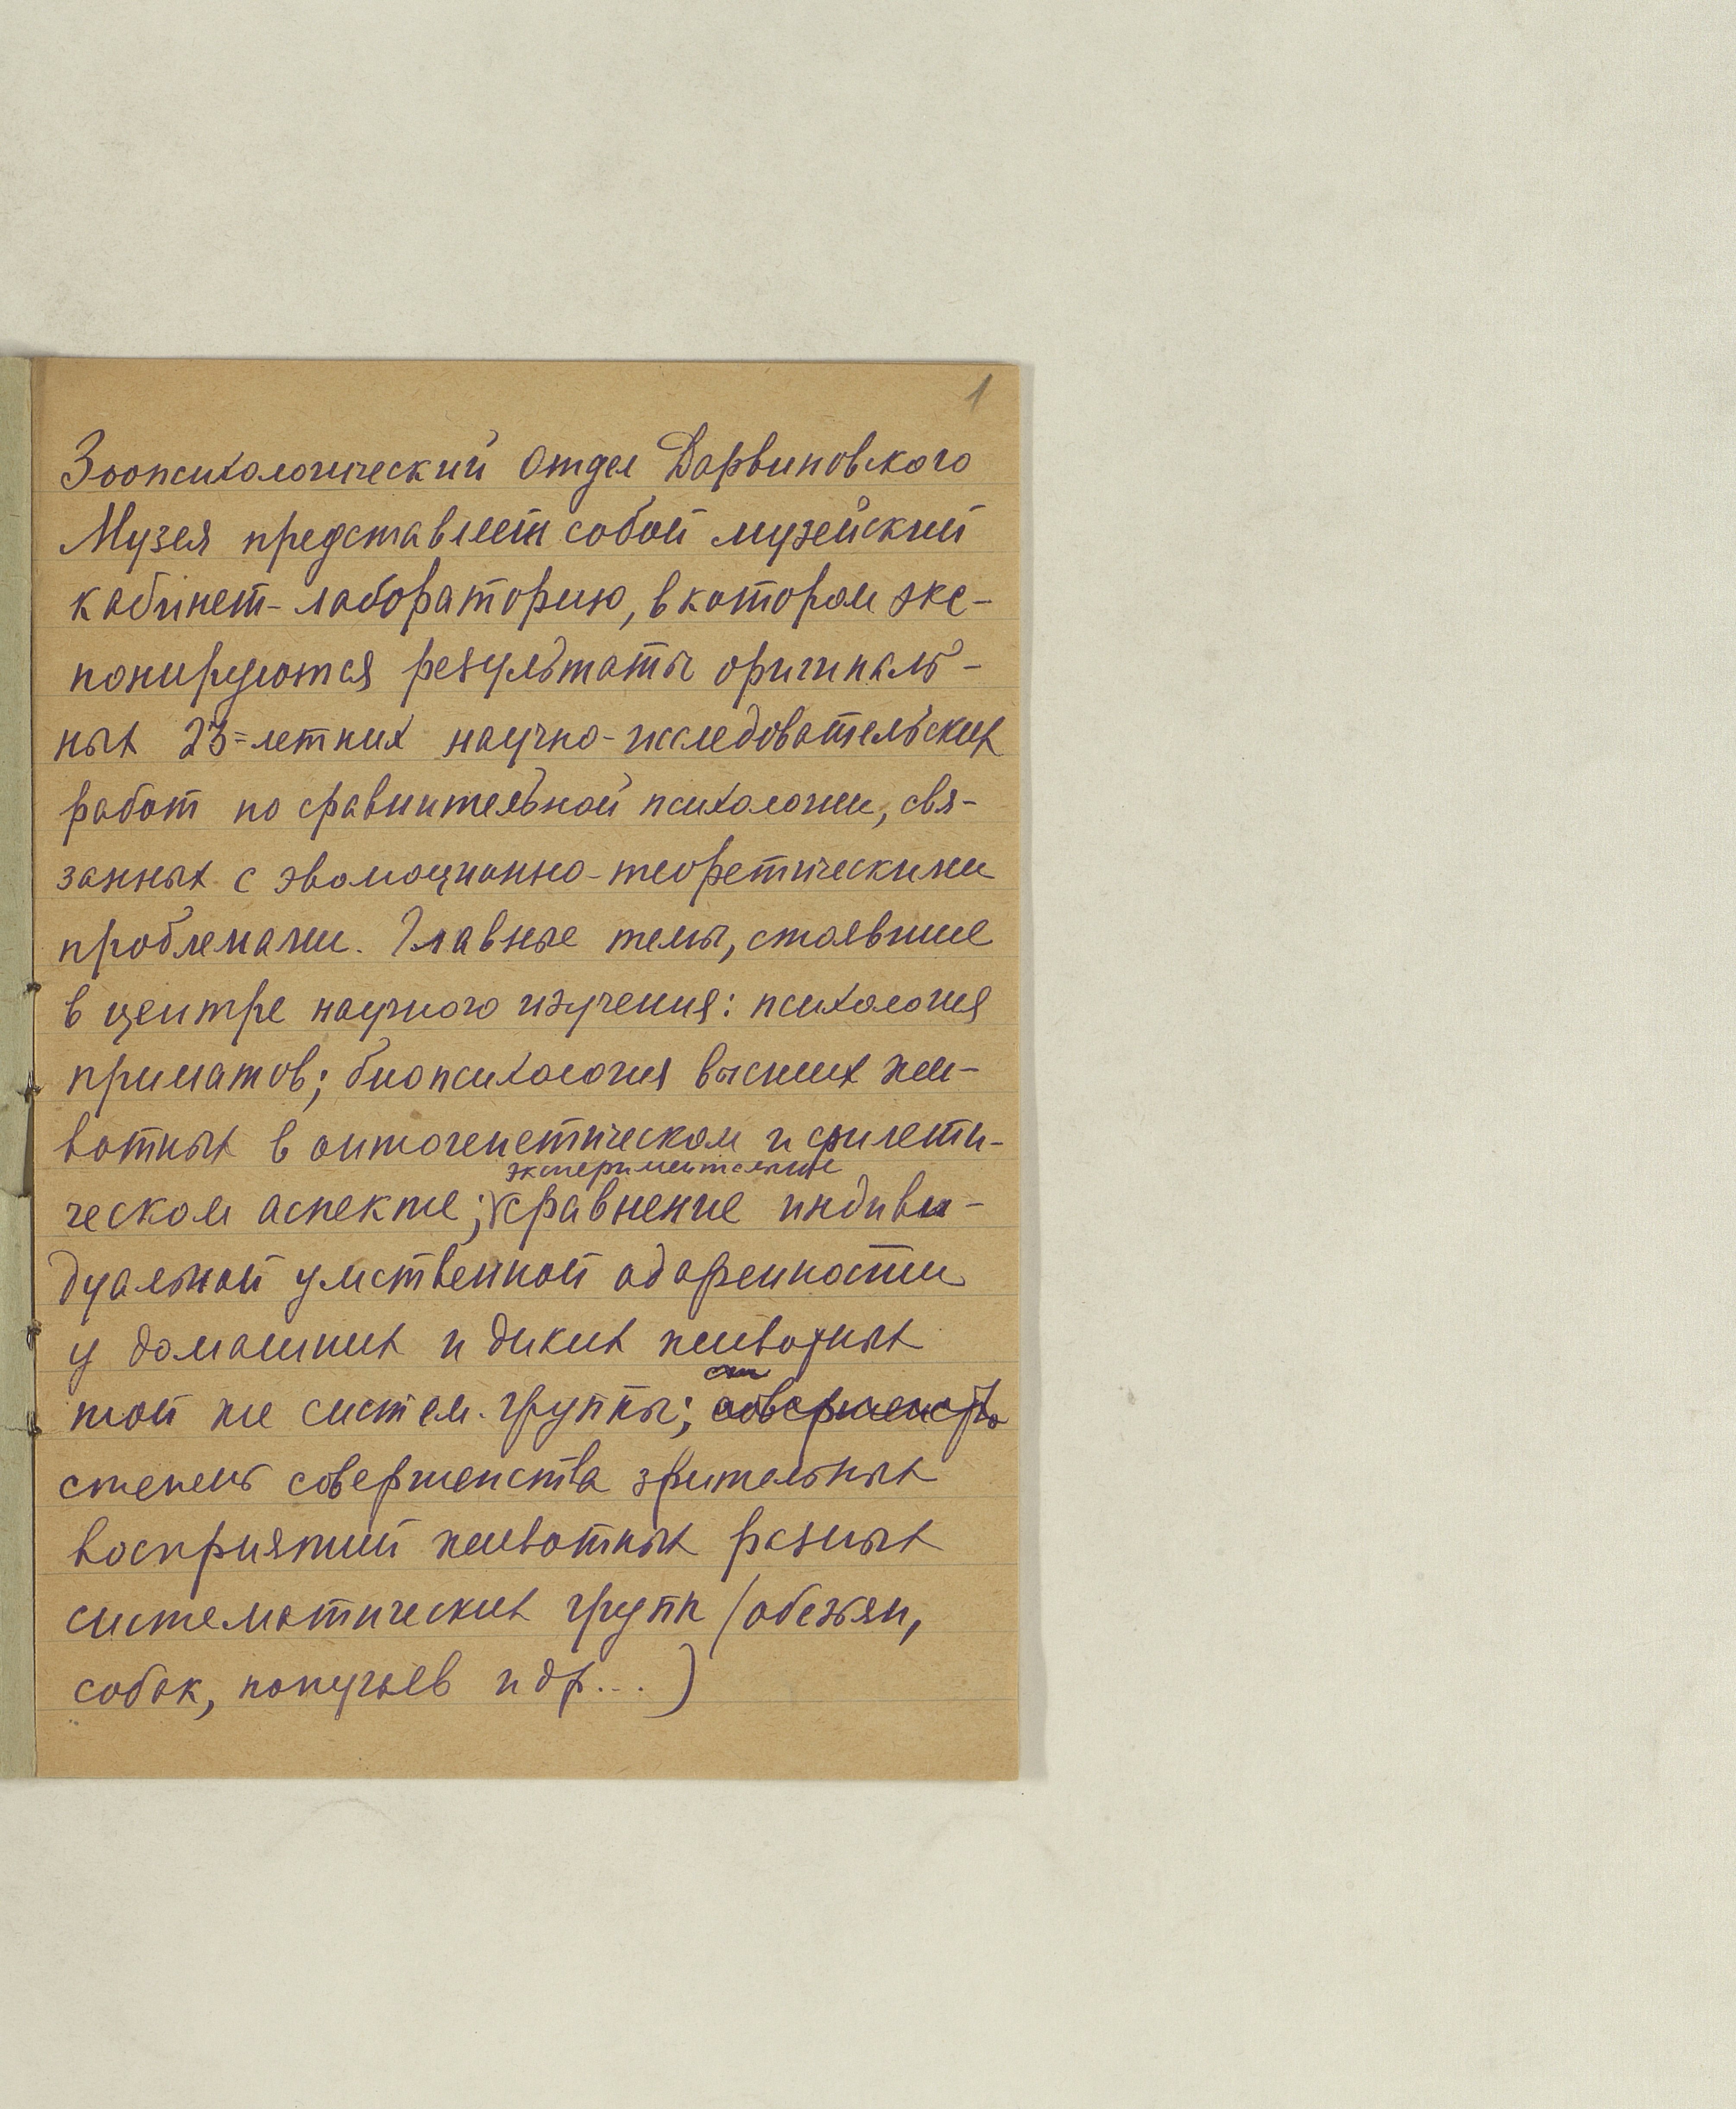 1
Зоопсихологический Отдел Дарвиновского
Музея представляет собой музейский
кабинет-лабораторию, в котором экс-
понируются результаты оригиналь-
ных 23=летних научно-исследовательских
работ по сравнительной психологии, свя-
занных с эволюционно-теоретическими
проблемами. Главные темы, стоявшие
в центре научного изучения: психология
приматов; биопсихология высших жи-
вотных в онтогенетическом и филети-
экспериментальное
ческом аспекте; сравнение индиви-
дуальной умственной одаренности
у домашних и диких животных
той же систем. группы; совершенство
степень совершенства зрительных
восприятий животных разных
систематических групп (обезьян,
собак, попугаев и др...)